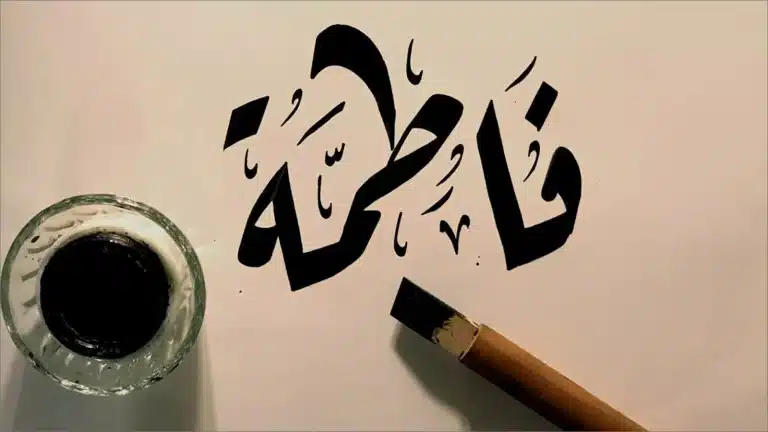 فَاطِمَّةُ